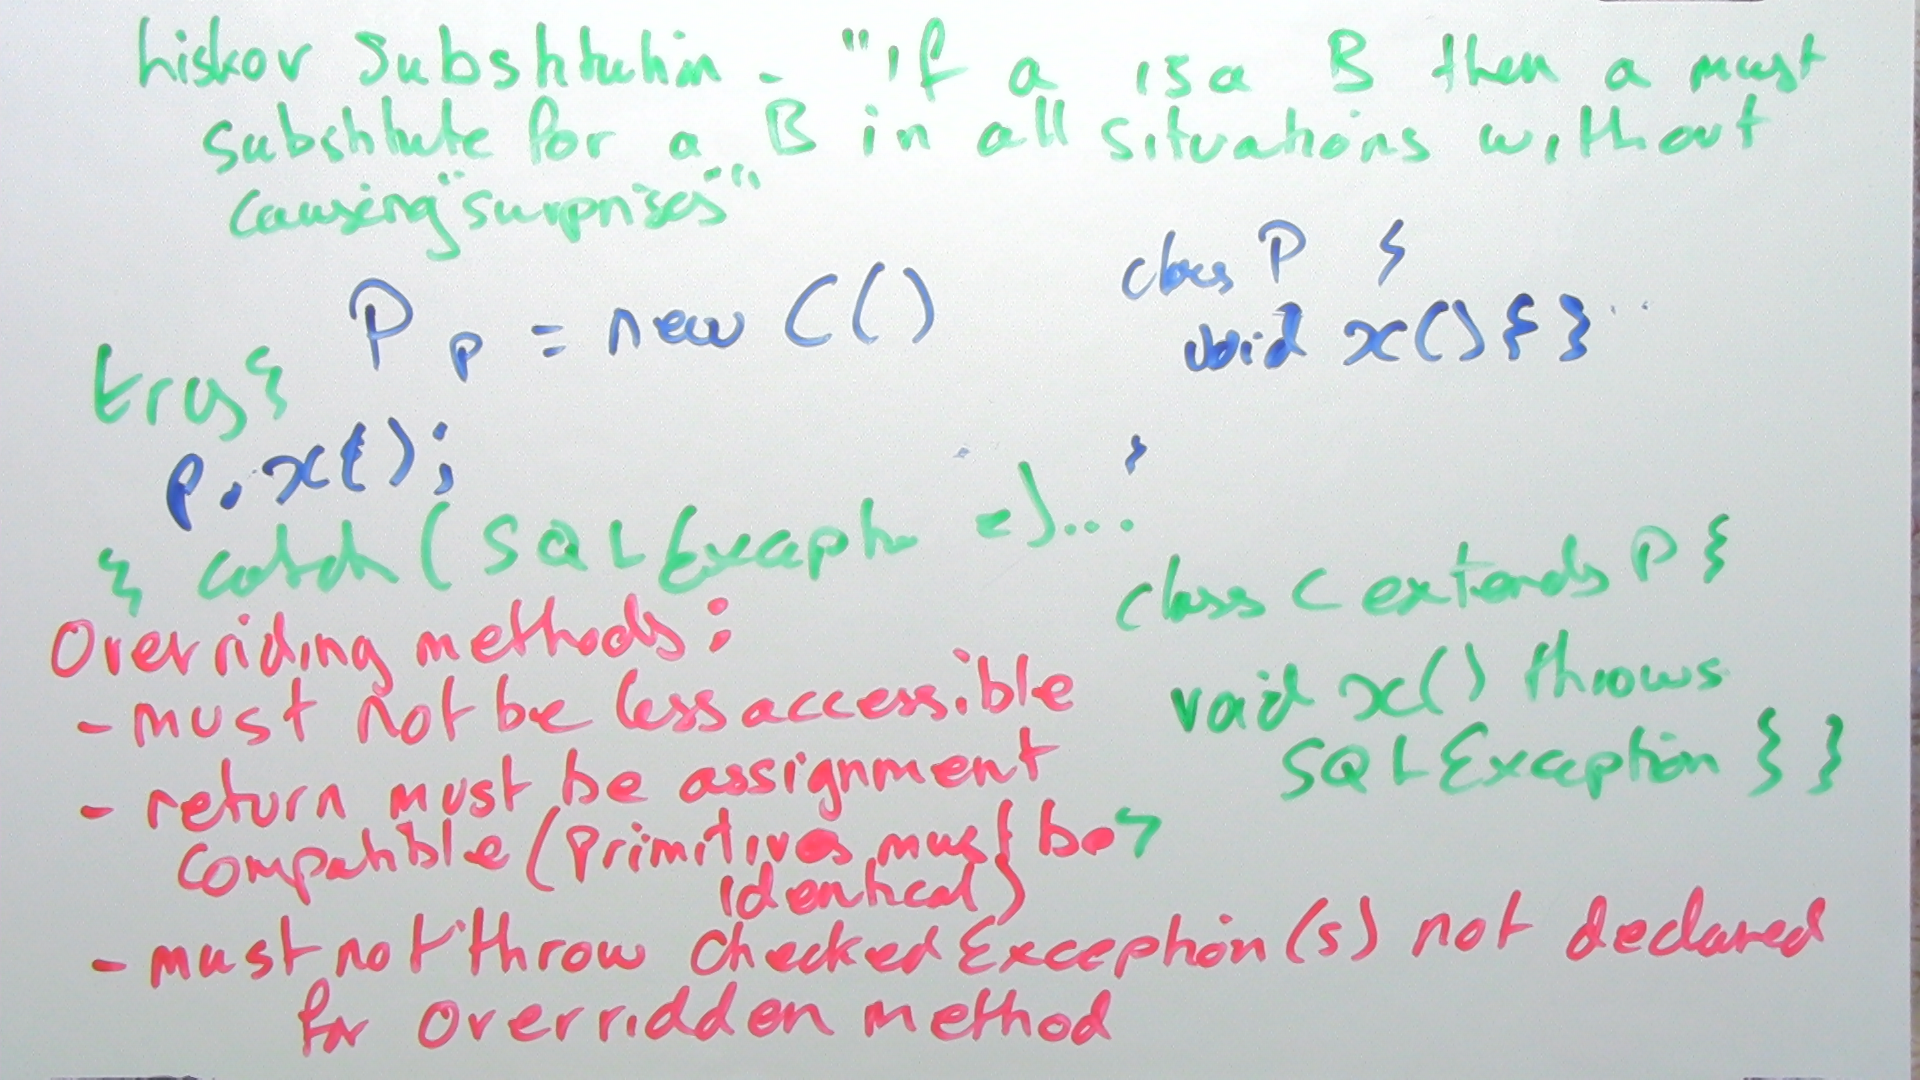 Liskov Substitution - "if a isa B then a must
substitute for a B in all situations without
causing "surprises""
P p = new C()
class P {
void x() { } ..
try {
p.x();
}
} catch ( SQLExceptn e) ...
class C extends P {
void x() throws
SQLException } }
Overriding methods:
- must not be less accessible
- return must be assignment
compatible (primitives must be
identical)
- must not throw checked Exception(s) not declared
for overridden method